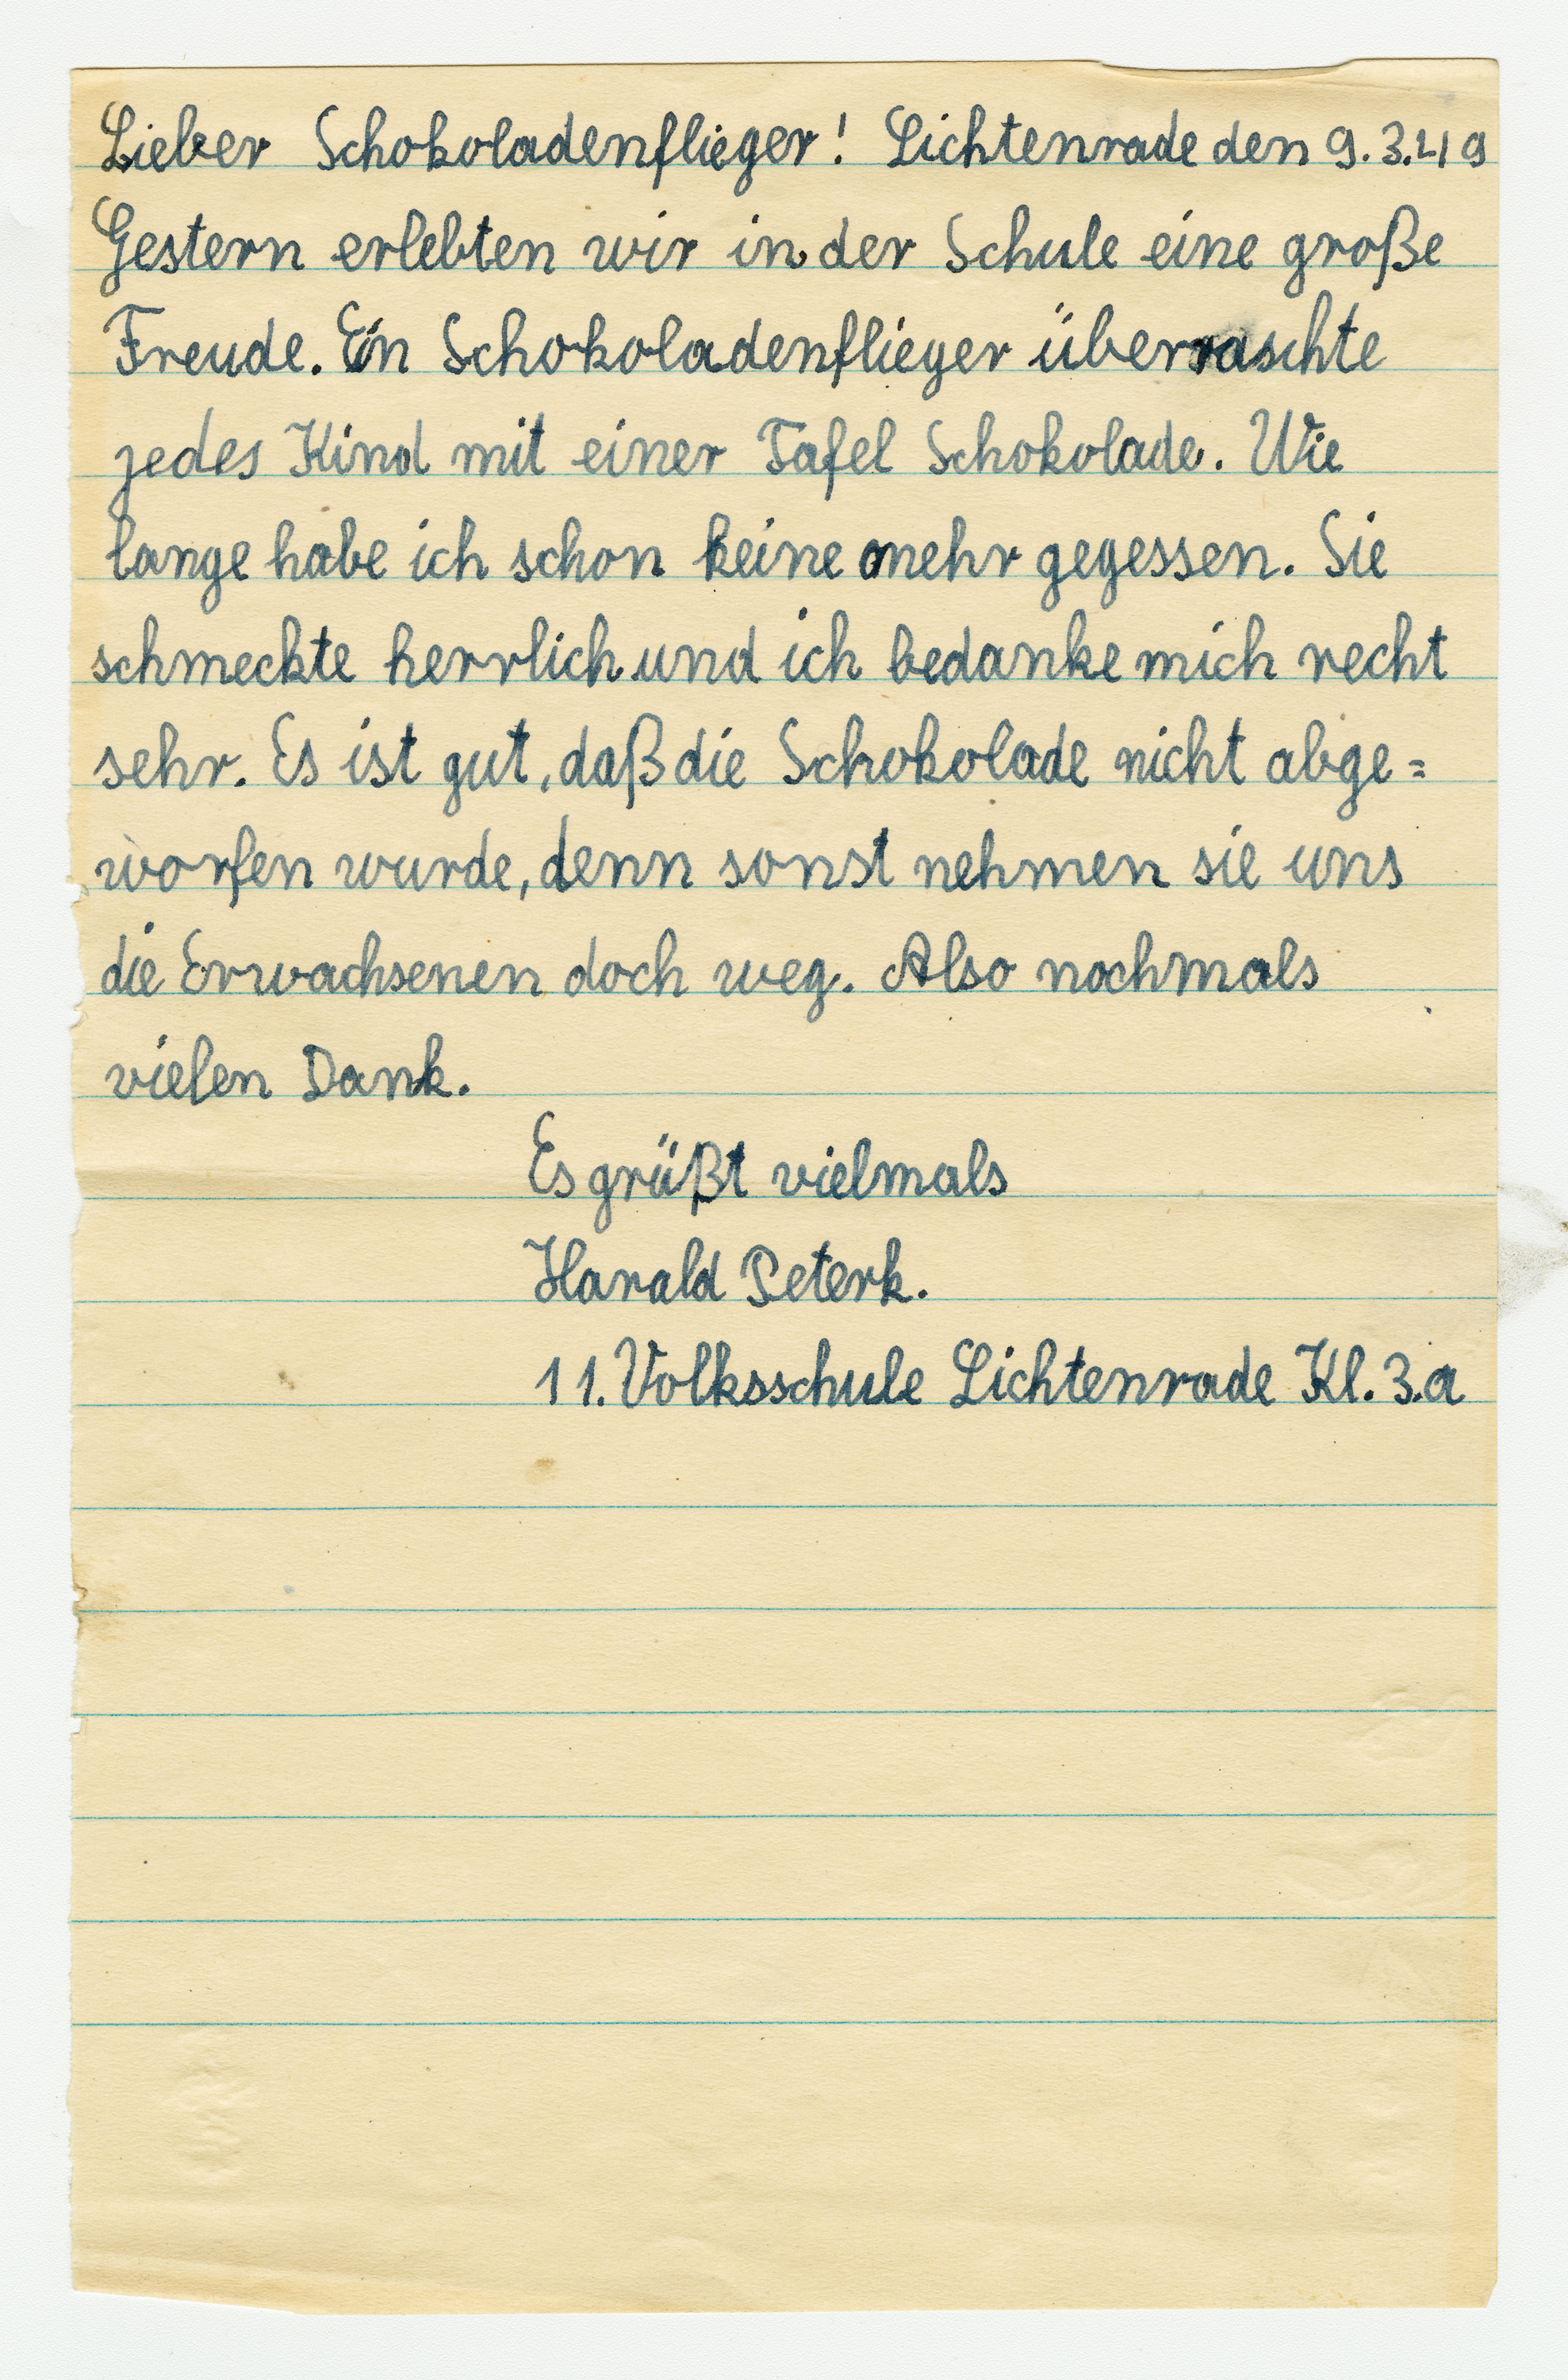 Lieber Schokoladenflieger! Lichtenrade den 9.3.49
Gestern erlebten wir in der Schule eine große
Freude. Ein Schokoladenflieger überraschte
jedes Kind mit einer Tafel Schokolade. Wie
lange habe ich schon keine mehr gegessen. Sie
schmeckte herrlich und ich bedanke mich recht
sehr. Es ist gut, daß die Schokolade nicht abge=
worfen wurde, denn sonst nehmen sie uns
die Erwachsenen doch weg. Also nochmals
vielen Dank.
Es grüßt vielmals
Harald Peterk.
11. Volksschule Lichtenrade Kl. 3.a